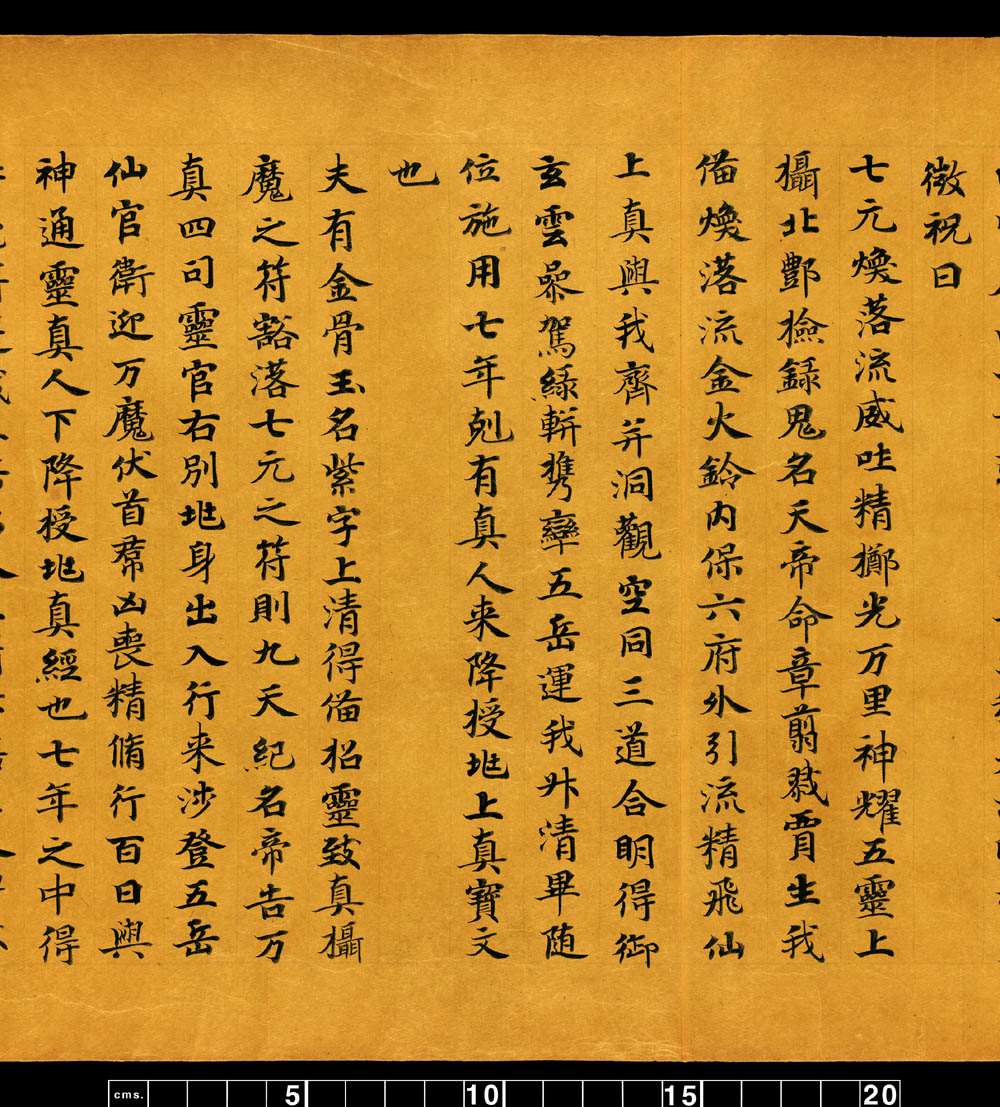 微祝曰
七元煥落流威吐精擲光万里神耀五靈上
攝北酆撿録鬼名天帝命章翦戮賈生我
俻煥落流金火鈴内保六府外引流精飛仙
上真與我齊并洞觀空同三道合明得御
玄雲喿駕綠軿攜契五岳運我昇清畢随
位施用七年剋有真人来降授地上真寳文
也
夫有金骨玉名紫字上清得俻招靈致真攝
魔之符豁落七元之符則九天紀名帝告万
真四司靈官右別地身出入行来涉登五岳
仙官衛迎万魔伏首羣凶喪精脩行百日與
神通靈真人下降授地真經也七年之中得
cms. 5 10 15 20